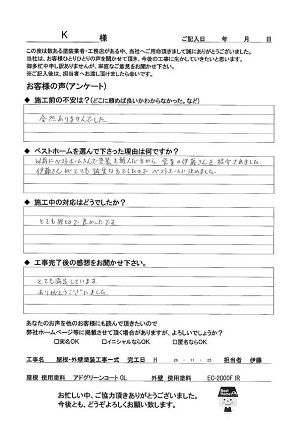 K 様
ご記入日 年 月 日
この度は数ある塗装業者・工務店がある中、当社へご用命頂きまして誠にありがとうございました。
当社は、お客様ひとりひとりの声を聞かせて頂き、今後の工事に生かしていきたいと思います。
御多忙中申し訳ありませんが、率直なご意見をお聞かせ下さい。
※ご記入後は、担当者へお渡し頂けましたら幸いです。
お客様の声(アンケート)
◆ 施工前の不安は?(どこに頼めば良いかわからなかった。など)
全然ありませんでした
◆ ベストホームを選んで下さった理由は何ですか?
以前にベストホームさんで塗装を頼んだ方から 営業の伊藤さんを紹介されました
伊藤さんがとても誠実な方でしたので ベストホームに決めました
◆ 施工中の対応はどうでしたか?
とても親切で良かったです
◆ 工事完了後の感想をお聞かせ下さい。
とても満足しています
ありがとうございました
あなたのお声を他のお客様にも読んで頂きたいので
弊社ホームページ等に掲載させて頂く場合がありますが、よろしいでしょうか?
□実名OK □イニシャルならOK □匿名ならOK
工事名 屋根・外壁塗装工事一式 完工日 H 26・11・25 担当者 伊藤
屋根 使用塗料 アドグリーンコートGL 外壁 使用塗料 EC-2000F IR
お忙しい中、ご協力頂きありがとうございました。
今後とも、どうぞよろしくお願い致します。